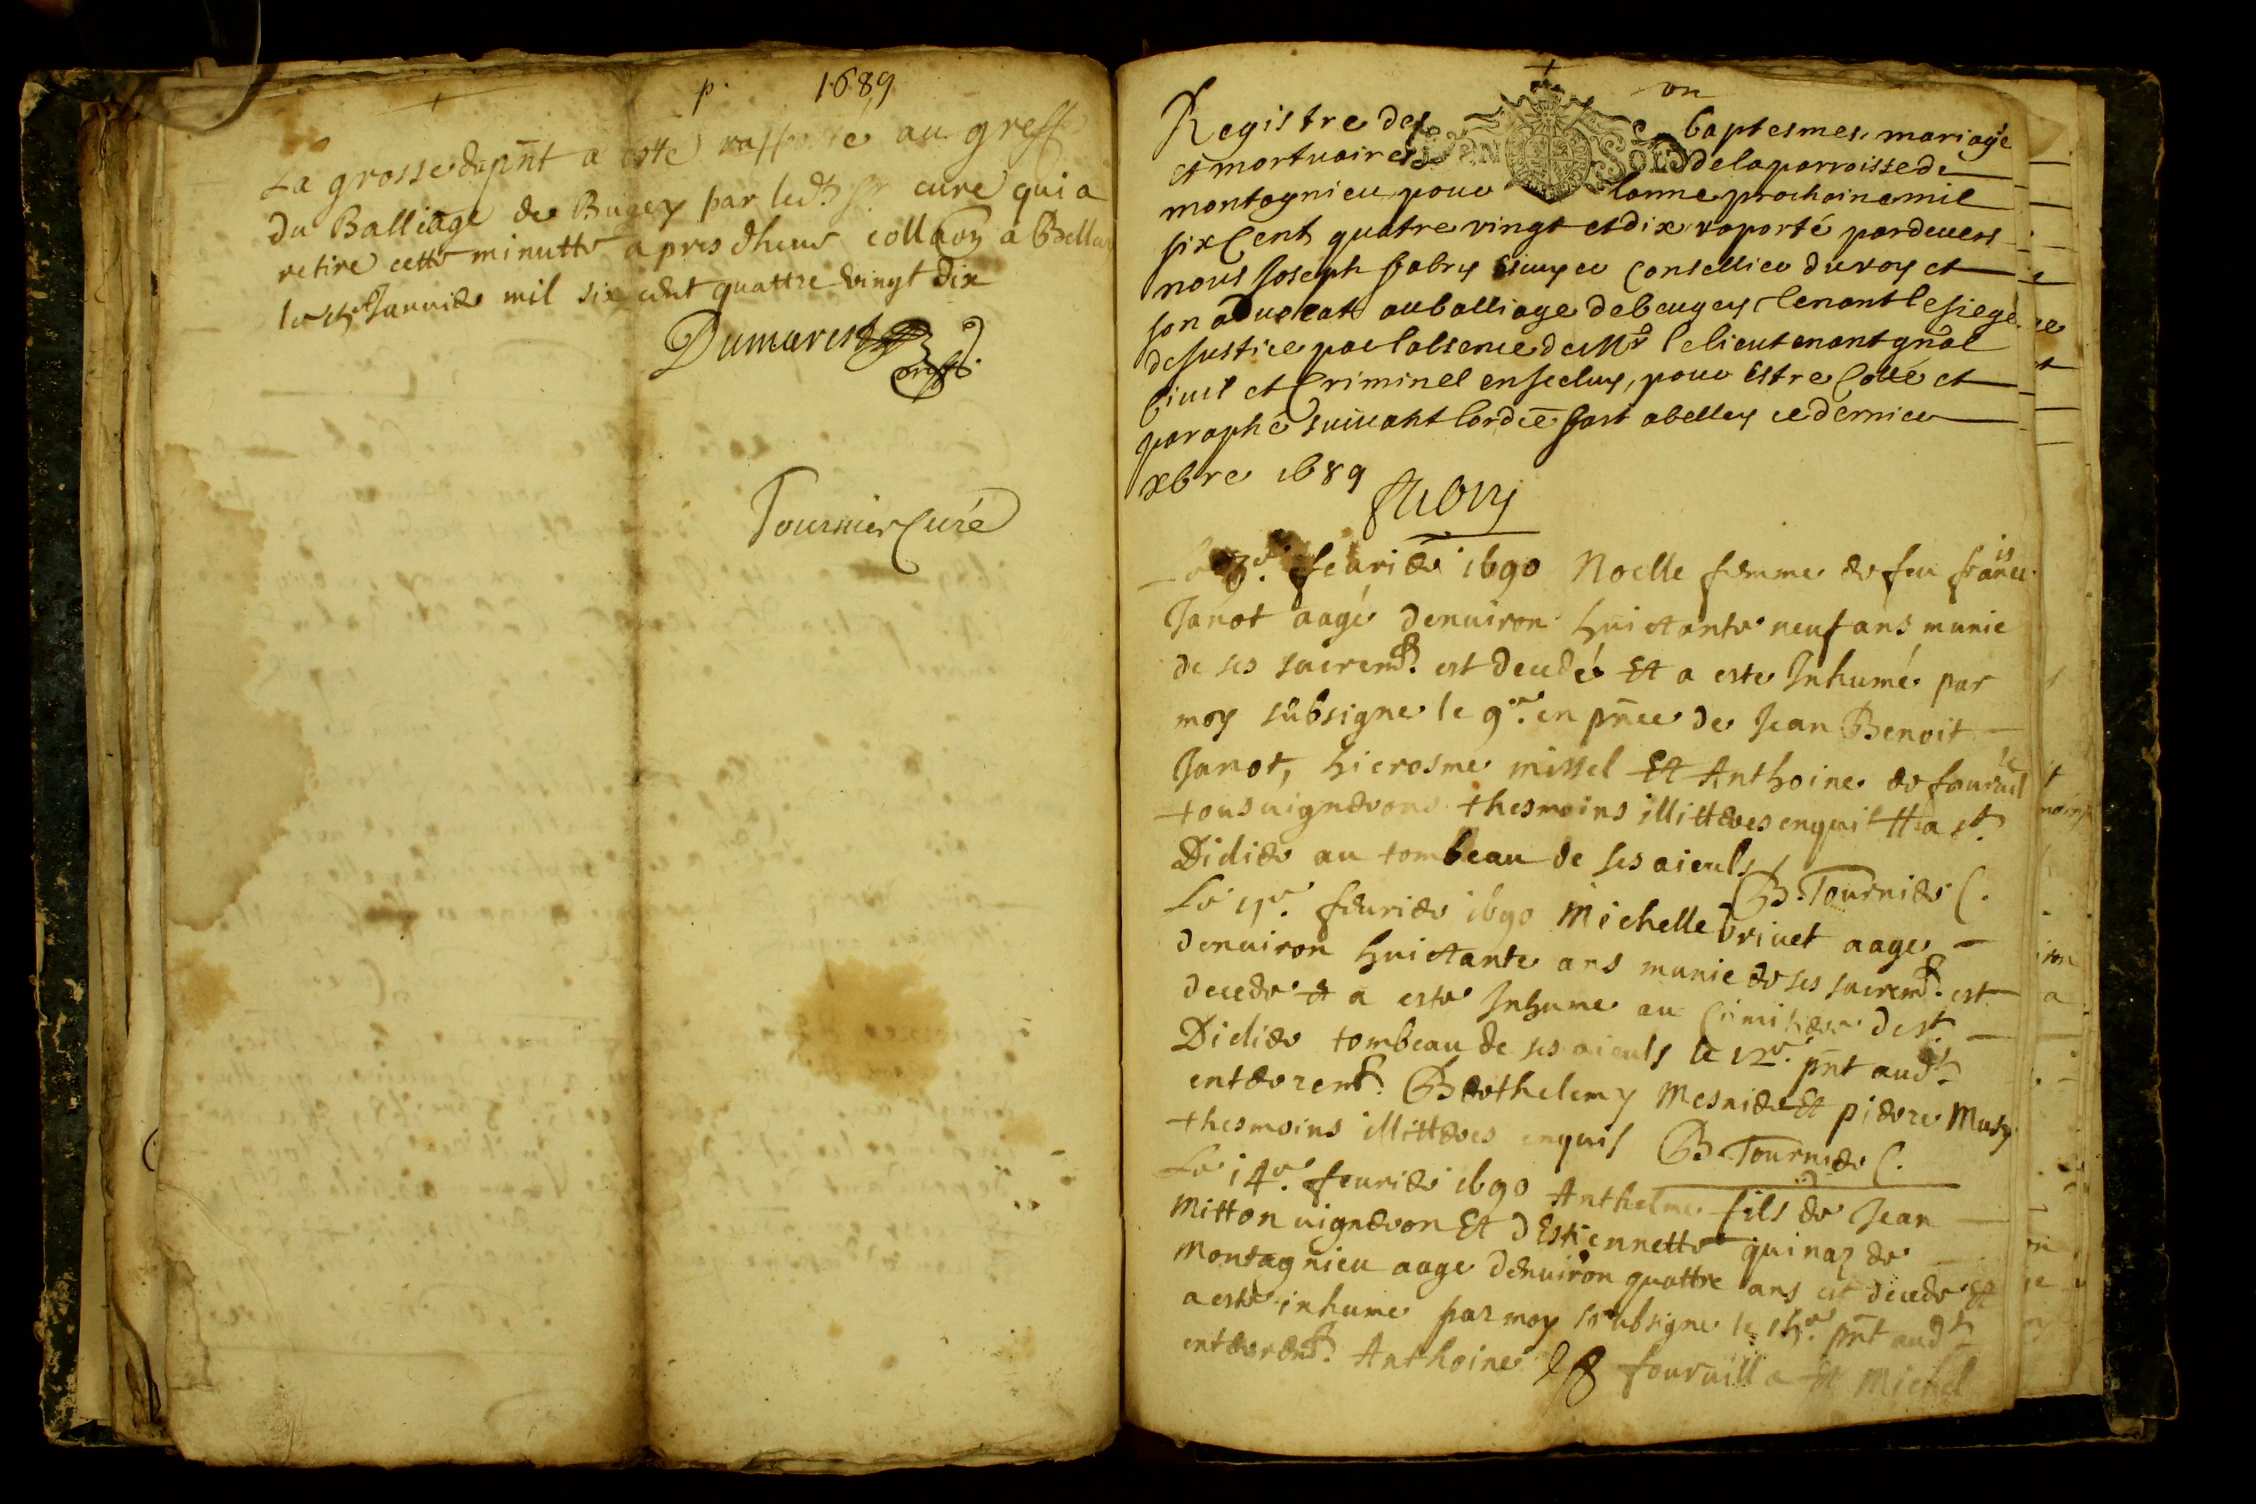 p. 1689
La grosse du pnt a este rapporté au greff
du Balliage de Bugey par led. Sr cure qui a
retire cette minutte apres dheue collaon a Belley
le Januier mil six cent quattre vingt dix
Dumarest
Tournier Curé
un
Registre des baptesmes, mariage
et mortuaires de la parroisse de
montagnieu pour lanne prochaine mil
six Cent quatre vingt et dix raporté pardeuers
nous Joseph fabry Escuyer Conseillier du roy et
son aduocat au balliage de beugey tenant le siege
de Justice par labsence de Mr le lieutenant gnal
Ciuil et Criminel en iceluy, pour estre Cotté et
paraphé suiuant lordce fait a belley ce dernier
xbre 1689
fabry
Le feurier 1690 Noelle femme de feu francis
Janot aagé denuiron huictante neuf ans munie
de ses sacremt. est decedé Et a este Inhumé par
moy subsigne le 9e. en pnce de Jean Benoit
Janot, hierosme missel Et Anthoine de fouruil
tous uignerons thesmoins illitteres enquis Et a st.
Didier au tombeau de ses aieuls
B. Tournier C.
Le 11e. feurier 1690 Michelle briuet aage
denuiron huictante ans munie de ses sacremt. est
decede et a este Inhume au Cimitiere de st.
Didier tombeau de ses aieuls le 12e. pnt aud.
enterremt. Berthelemy Mesnier Et pierre Musy
thesmoins illitteres enquis B. Tournier C.
Le 14e. feurier 1690 Anthelme fils de Jean
Mitton uigneron Et dEstiennette quinaz de
Montagnieu aage denuiron quattre ans est decede Et
a este inhume par moy soubsigne le 15e. pnt aud.
enterremt. Anthoine de fouruilla Et Michel